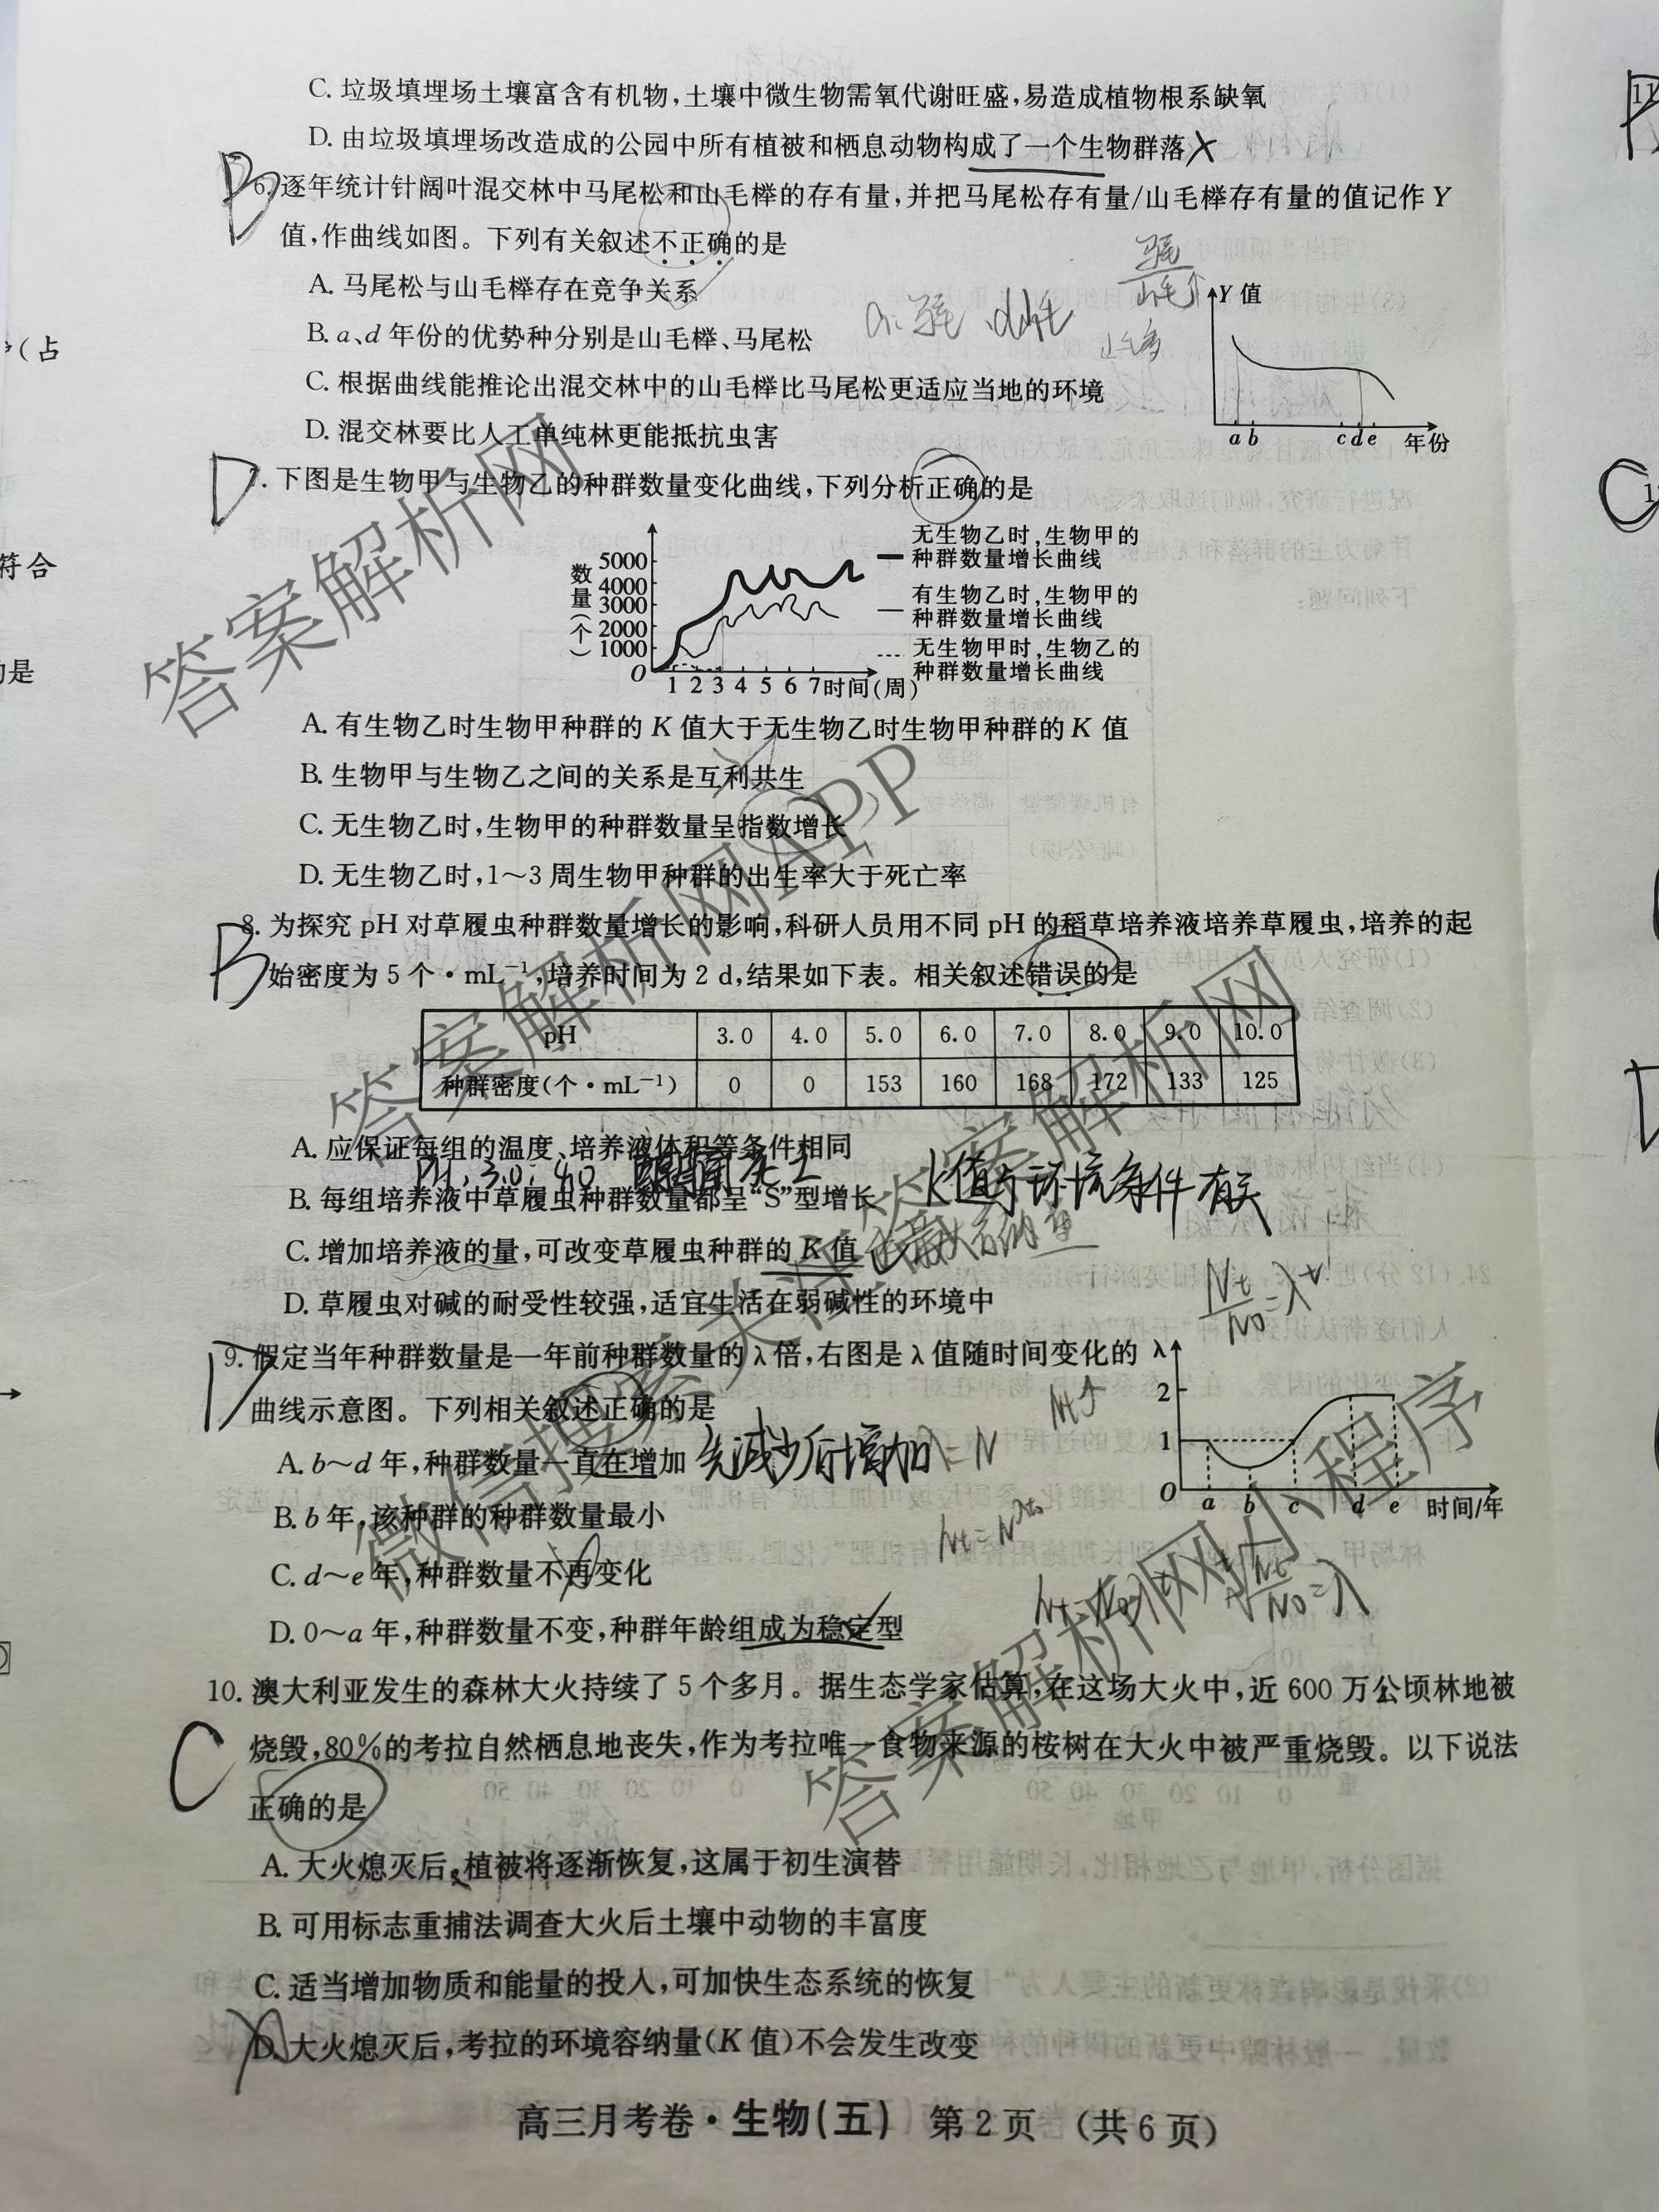 C. 垃圾填埋场土壤富含有机物,土壤中微生物需氧代谢旺盛,易造成植物根系缺氧
D. 由垃圾填埋场改造成的公园中所有植被和栖息动物构成了一个生物群落
B
6. 逐年统计针阔叶混交林中马尾松和山毛榉的存有量,并把马尾松存有量/山毛榉存有量的值记作 Y
值,作曲线如图。下列有关叙述不正确的是
A. 马尾松与山毛榉存在竞争关系
B. a、d 年份的优势种分别是山毛榉、马尾松
C. 根据曲线能推论出混交林中的山毛榉比马尾松更适应当地的环境
D. 混交林要比人工单纯林更能抵抗虫害
Y 值
a b c d e 年份
(占
符合
的是
D
7. 下图是生物甲与生物乙的种群数量变化曲线,下列分析正确的是
数量(个)
5000
4000
3000
2000
1000
O
1 2 3 4 5 6 7 时间(周)
无生物乙时,生物甲的
种群数量增长曲线
有生物乙时,生物甲的
种群数量增长曲线
无生物甲时,生物乙的
种群数量增长曲线
A. 有生物乙时生物甲种群的 K 值大于无生物乙时生物甲种群的 K 值
B. 生物甲与生物乙之间的关系是互利共生
C. 无生物乙时,生物甲的种群数量呈指数增长
D. 无生物乙时,1～3 周生物甲种群的出生率大于死亡率
B
8. 为探究 pH 对草履虫种群数量增长的影响,科研人员用不同 pH 的稻草培养液培养草履虫,培养的起
始密度为 5 个·mL⁻¹,培养时间为 2 d,结果如下表。相关叙述错误的是
pH 3.0 4.0 5.0 6.0 7.0 8.0 9.0 10.0
种群密度(个·mL⁻¹) 0 0 153 160 168 172 133 125
A. 应保证每组的温度、培养液体积等条件相同
B. 每组培养液中草履虫种群数量都呈“S”型增长
K值与环境条件有关
C. 增加培养液的量,可改变草履虫种群的 K 值
D. 草履虫对碱的耐受性较强,适宜生活在弱碱性的环境中
Nt/N0=λt
D
9. 假定当年种群数量是一年前种群数量的 λ 倍,右图是 λ 值随时间变化的
曲线示意图。下列相关叙述正确的是
A. b～d 年,种群数量一直在增加 先减少后增加
B. b 年,该种群的种群数量最小
C. d～e 年,种群数量不再变化
D. 0～a 年,种群数量不变,种群年龄组成为稳定型
λ
2
1
O a b c d e 时间/年
Nt/N0=λ
C
10. 澳大利亚发生的森林大火持续了 5 个多月。据生态学家估算,在这场大火中,近 600 万公顷林地被
烧毁,80%的考拉自然栖息地丧失,作为考拉唯一食物来源的桉树在大火中被严重烧毁。以下说法
正确的是
A. 大火熄灭后,植被将逐渐恢复,这属于初生演替
B. 可用标志重捕法调查大火后土壤中动物的丰富度
C. 适当增加物质和能量的投入,可加快生态系统的恢复
D. 大火熄灭后,考拉的环境容纳量(K 值)不会发生改变
高三月考卷·生物(五) 第 2 页 (共 6 页)
答案解析网
答案解析网APP
微信搜索关注答案解析网
答案解析网小程序